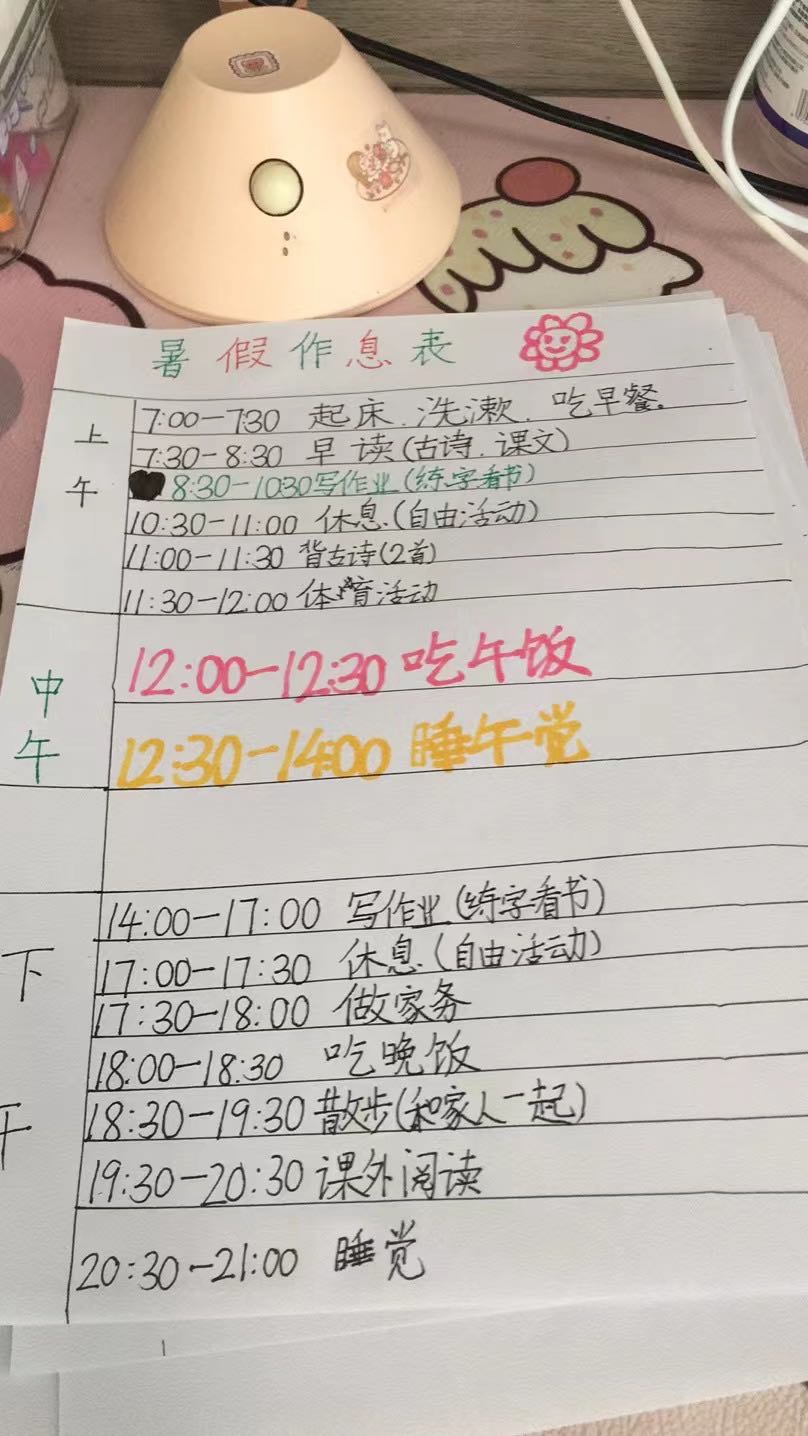 暑假作息表
上午
7:00-730 起床.洗漱.吃早餐.
7:30-8:30 早读(古诗.课文)
8:30-1030写作业(练字看书)
10:30-11:00 休息(自由活动)
11:00-11:30 背古诗(2首)
11:30-12:00 体育活动
中午
12:00-12:30 吃午饭
12:30-14:00 睡午觉
下午
14:00-17:00 写作业(练字看书)
17:00-17:30 休息(自由活动)
17:30-18:00 做家务
18:00-18:30 吃晚饭
18:30-19:30 散步(和家人一起)
19:30-20:30 课外阅读
20:30-21:00 睡觉